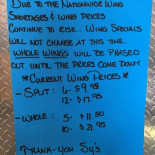 DUE TO THE NATIONWIDE WING
SHORTAGES & WING PRICES
CONTINUE TO RISE.. WING SPECIALS
WILL NOT CHANGE AT THIS TIME.
WHOLE WINGS WILL BE PHASED
OUT UNTIL THE PRICES COME DOWN!
*CURRENT WING PRICES*
-SPLIT: 6- $9.95
12- $17.95
-WHOLE: 5- $11.50
10- $21.95
THANK-YOU SY'S